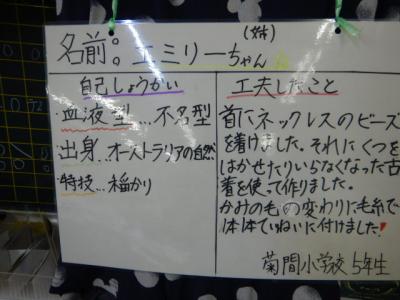 (女株)
名前。エミリーちゃん☆
自己しょうかい
・血液型…不名型
・出身…オーストラリアの自然
・特技…稲かり
工夫したこと
首にネックレスのビーズ
を着けました。それにくつを
はかせたりいらなくなった古
着を使って作りました。
かみの毛の変わりに毛糸で
1本1本ていねいに付けました!
菊間小学校5年生